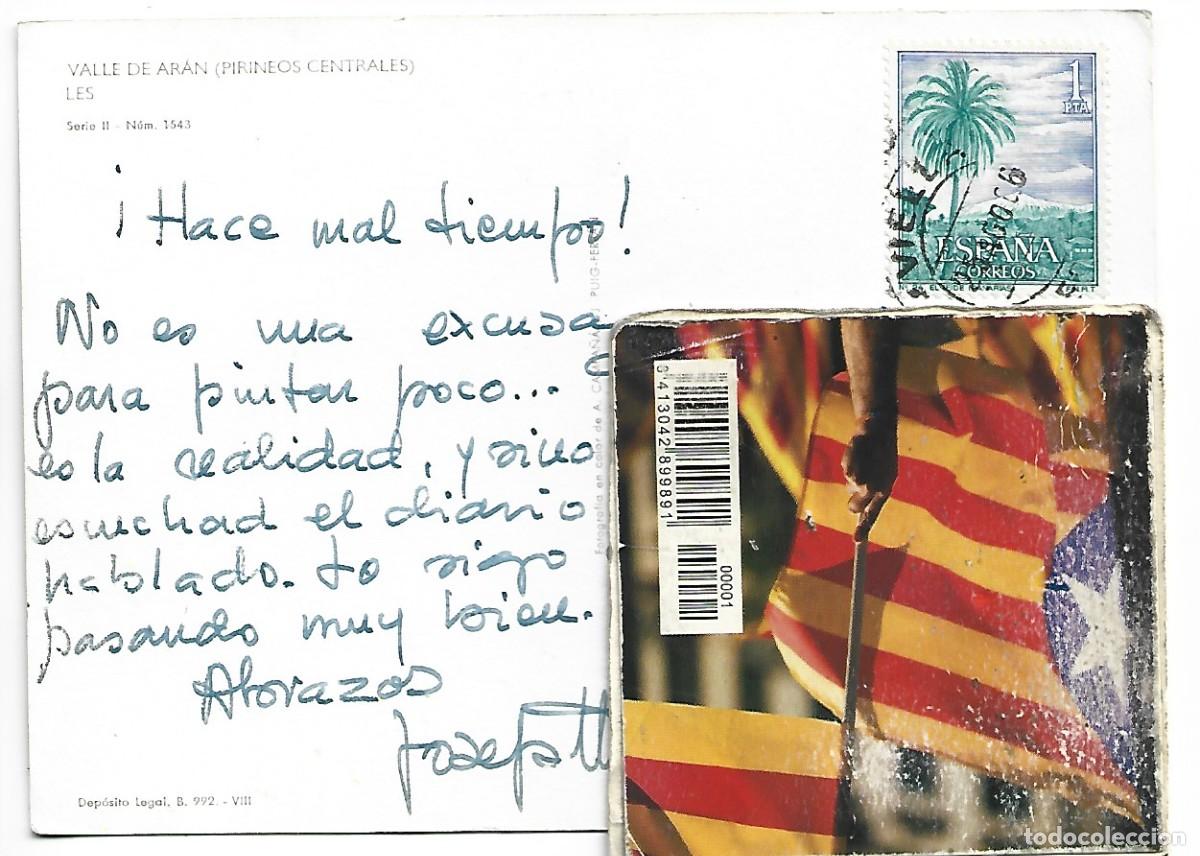 VALLE DE ARÁN (PIRINEOS CENTRALES)
LES
Serie II - Núm. 1543
¡Hace mal tiempo!
No es una excusa
para pintar poco...
es la realidad, y sino
escuchad el diario
hablado. Yo sigo
pasando muy bien.
Abrazos
Josefa
Depósito Legal, B. 992. - VIII
Fotografía en color de A. CAMPAÑÁ PUIG-FERRÁN
1
PTA
ESPAÑA
CORREOS
F.N.M.T
VIELLA
8413042899891
00001
todocoleccion